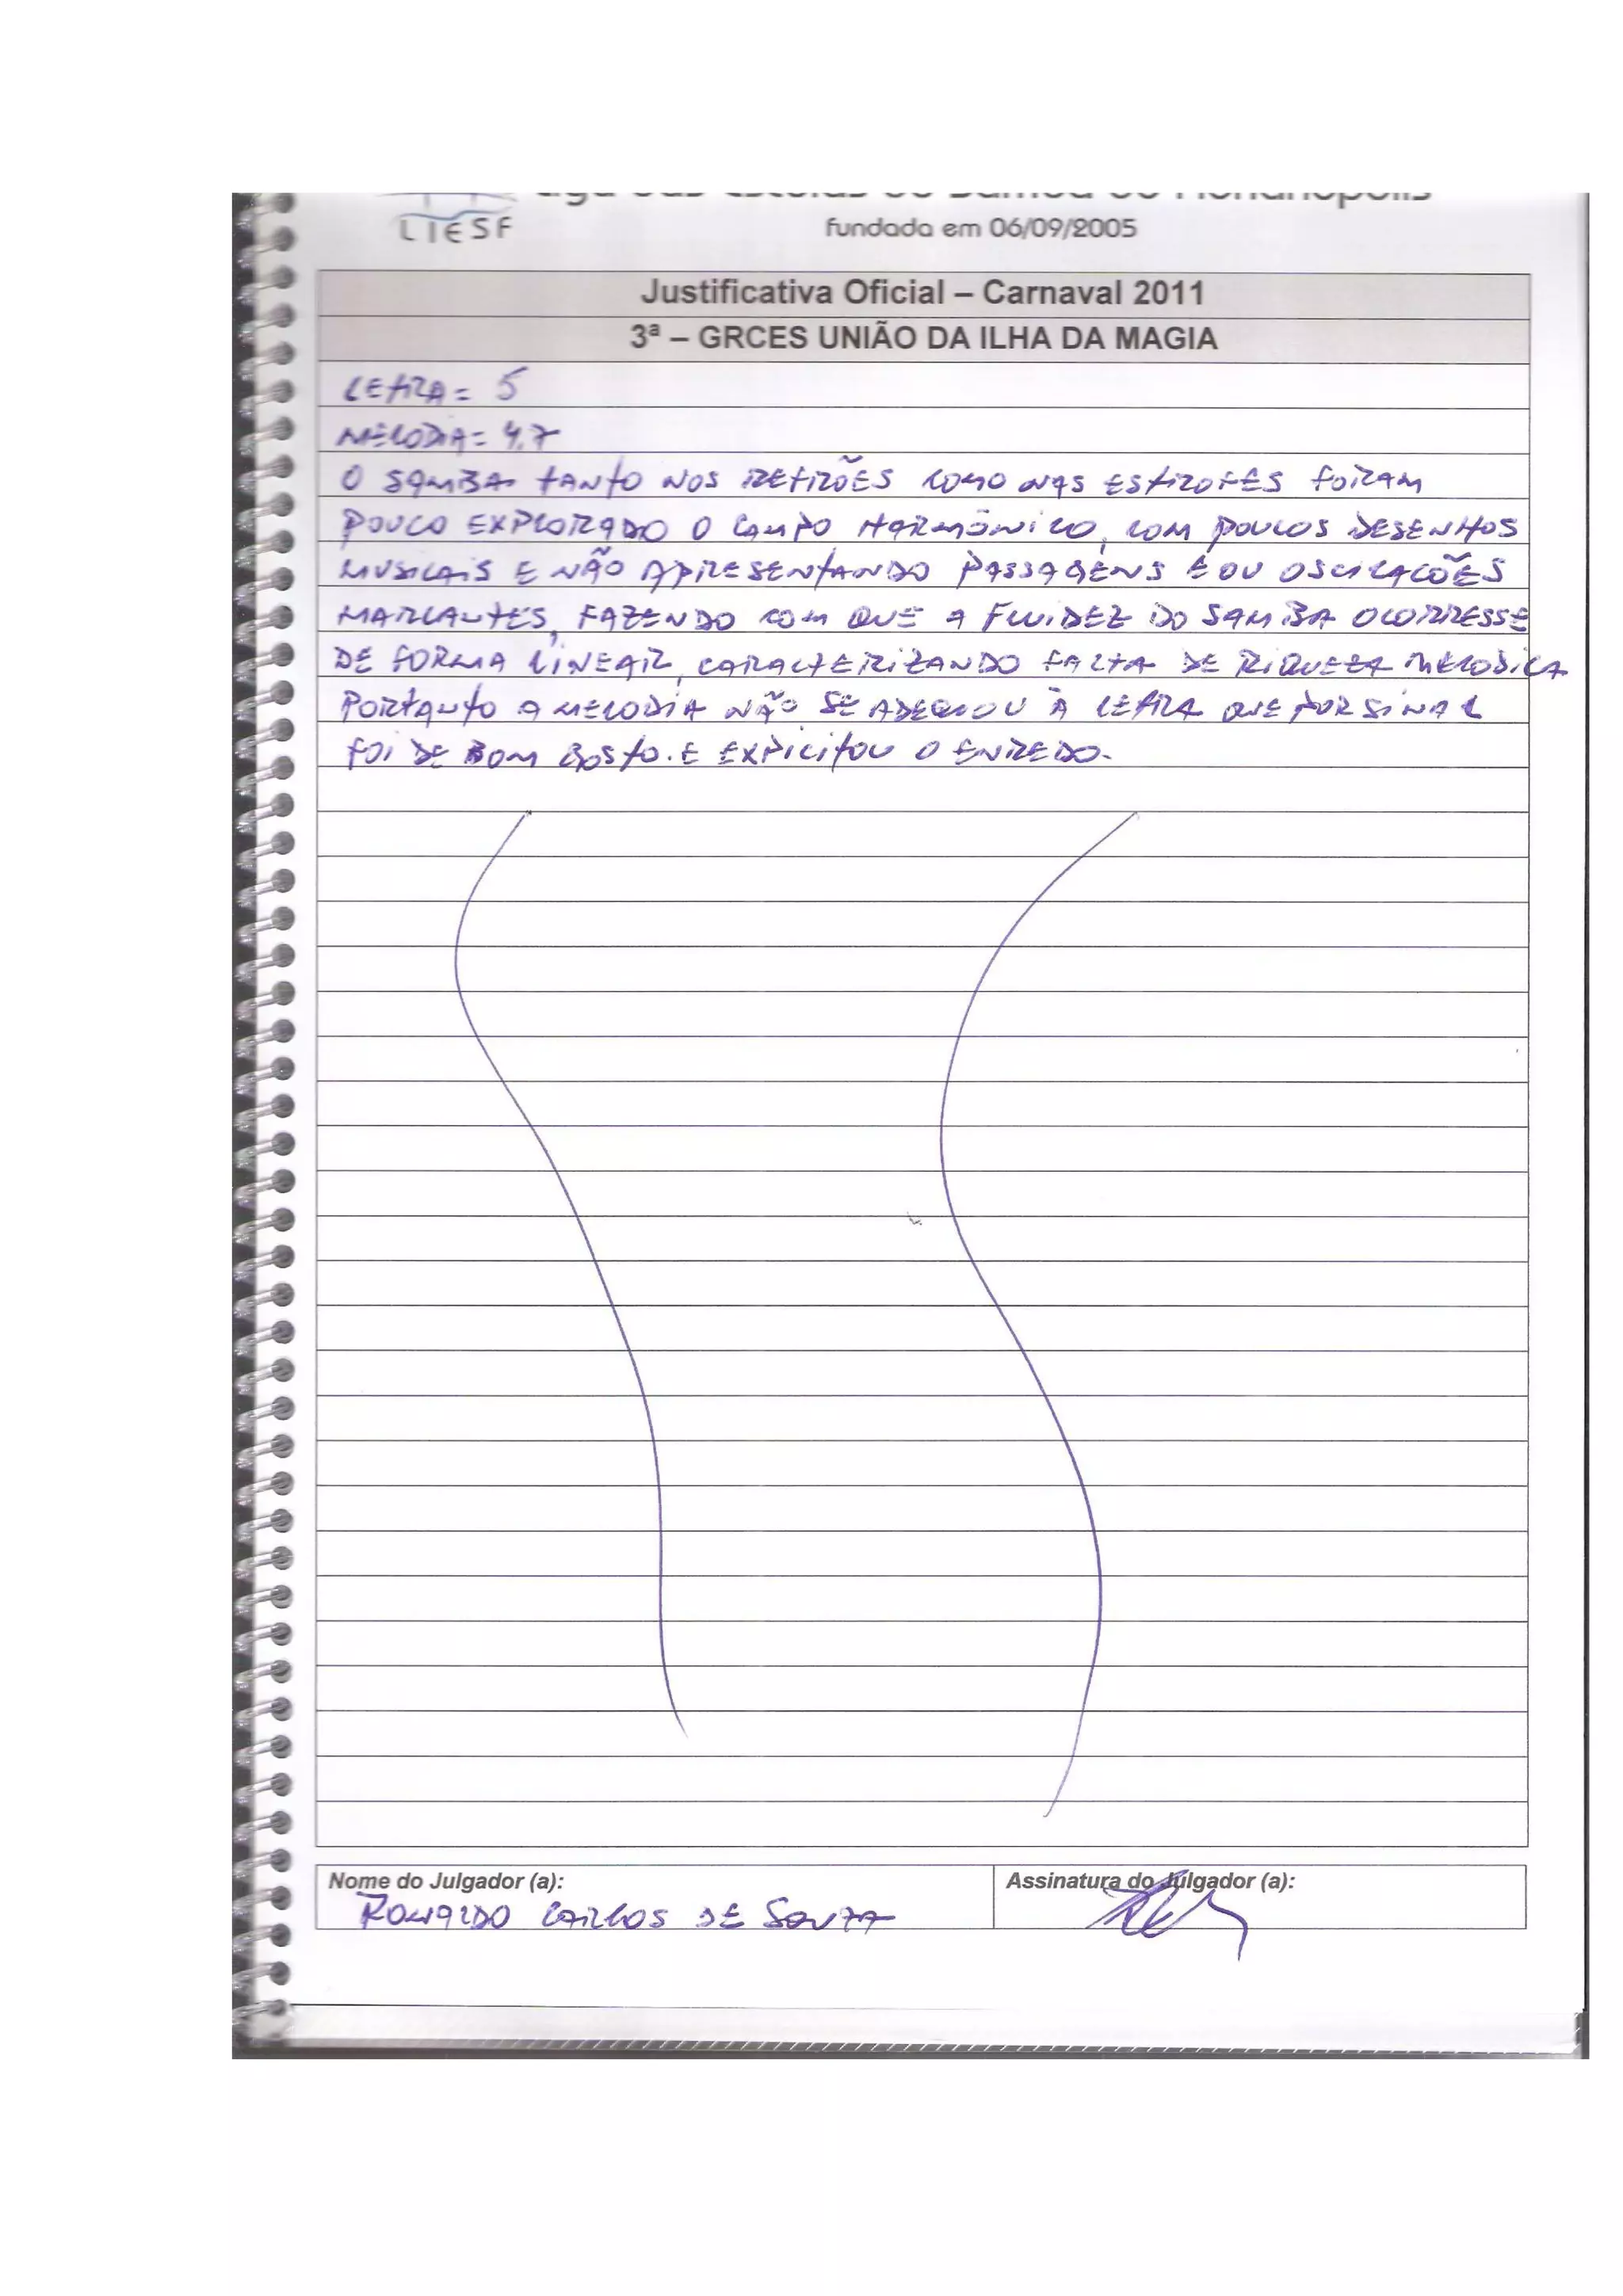 Liga das Escolas de Samba de Florianópolis
LIESF
fundada em 06/09/2005
Justificativa Oficial – Carnaval 2011
3ª – GRCES UNIÃO DA ILHA DA MAGIA
LETRA = 5
MELODIA = 4.7
O SAMBA TANTO NOS REFRÕES COMO NAS ESTROFES FORAM
POUCO EXPLORADO O CAMPO HARMÔNICO, COM POUCOS DESENHOS
MUSICAIS E NÃO APRESENTANDO PASSAGENS E OU OSCILACÕES
MARCANTES, FAZENDO COM QUE A FLUIDEZ DO SAMBA OCORRESSE
DE FORMA LINEAR, CARACTERIZANDO FALTA DE RIQUEZA MELODICA
PORTANTO A MELODIA NÃO SE ADEQUOU À LETRA QUE POR SINAL
FOI DE BOM GOSTO. E EXPICITOU O ENREDO.
Nome do Julgador (a):
Assinatura do Julgador (a):
RONALDO CARLOS DE SOUZA